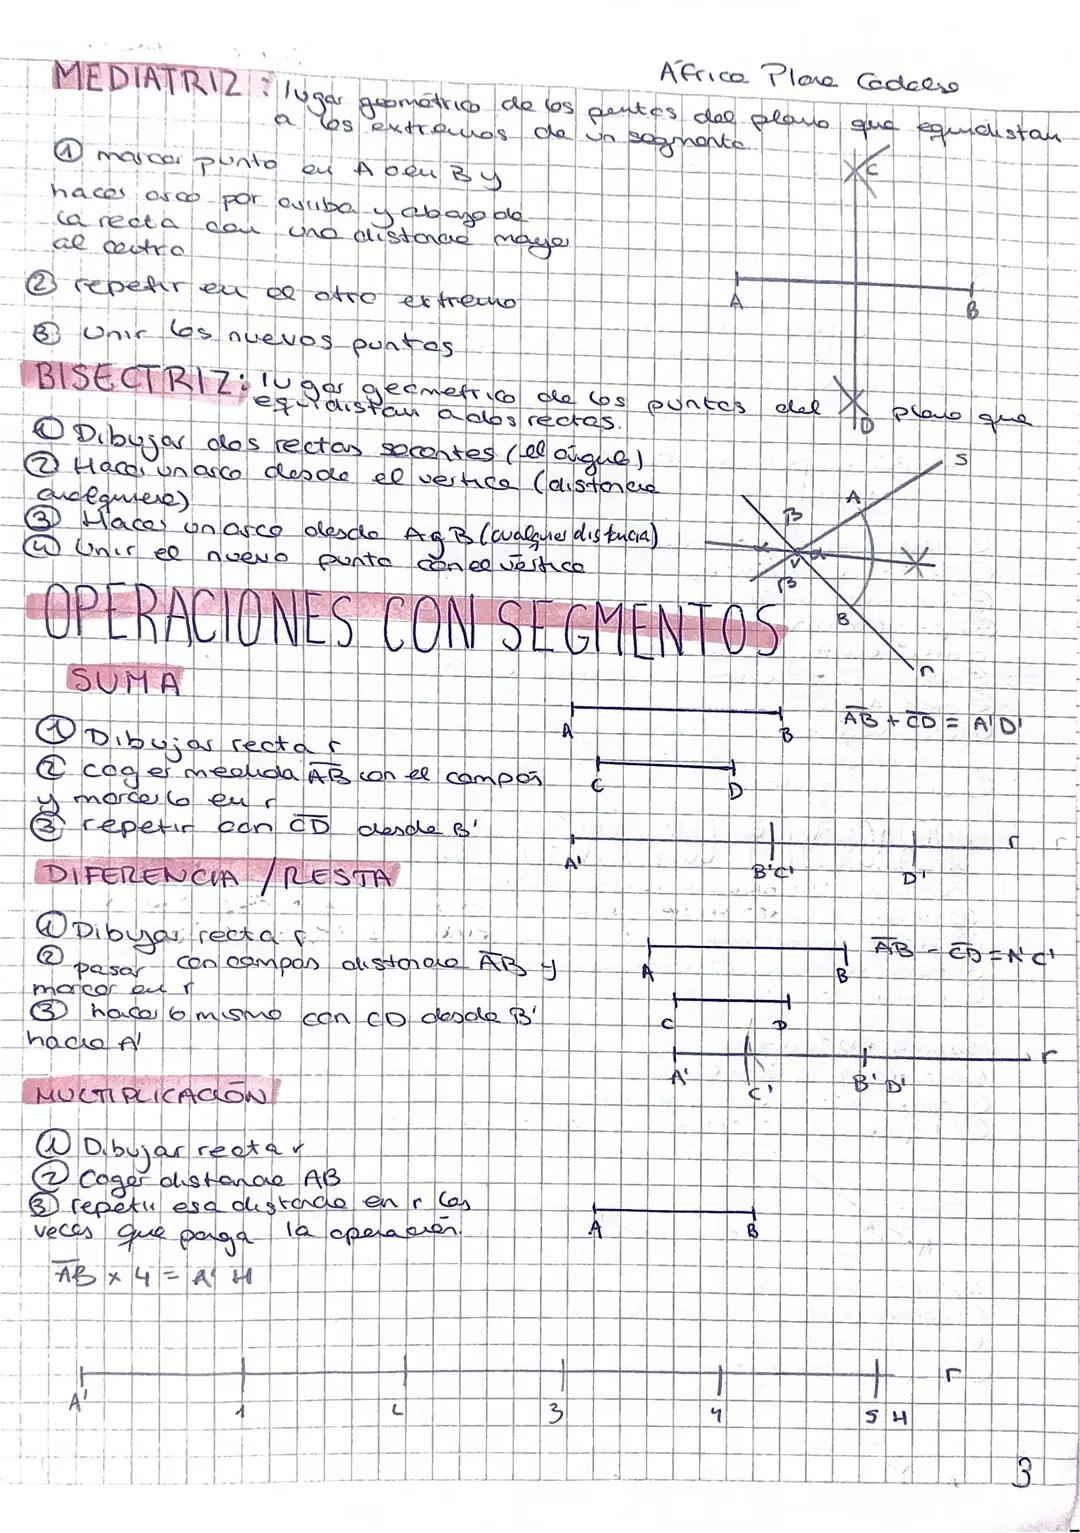 África Plaza Cadalso
MEDIATRIZ: lugar geométrico de los puntos del plano que equidistan
a los extremos de un segmento.
① marcar punto en A o en B y
hacer arco por arriba y abajo de
la recta con una distancia mayor
al centro
② repetir en el otro extremo
③ Unir los nuevos puntos
C
A
B
D
BISECTRIZ: lugar geometrico de los puntos del plano que
equidistan a dos rectas.
① Dibujar dos rectas secantes (el ángulo)
② Hacer un arco desde el vertice (distancia
cualquiera)
③ Hacer un arco desde A y B (cualquier distancia)
④ Unir el nuevo punto con el vértice
S
A
β
α
V
β
B
r
OPERACIONES CON SEGMENTOS
SUMA
① Dibujar recta r
② coger medida AB con el compás
y marcarlo en r
③ repetir con CD desde B'
A
B
AB + CD = A'D'
C
D
A'
B'C'
D'
r
DIFERENCIA / RESTA
① Dibujar recta r
② pasar con compás distancia AB y
marcar en r
③ hacer lo mismo con CD desde B'
hacia A'
A
B
AB - CD = A'C'
C
D
A'
C'
B' D'
r
MULTIPLICACIÓN
① Dibujar recta r
② Coger distancia AB
③ repetir esa distancia en r las
veces que ponga la operación.
A
B
AB x 4 = A' H
A'
1
2
3
4
5 H
r
3